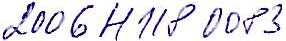 2006H118 0083